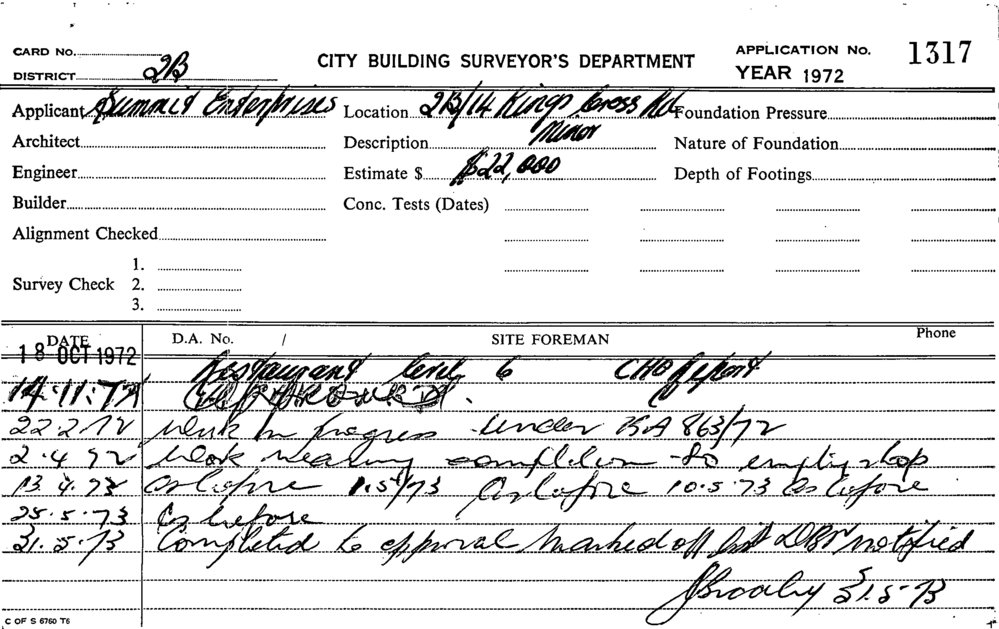 CARD No. CITY BUILDING SURVEYOR'S DEPARTMENT APPLICATION No. 1317
DISTRICT 2B YEAR 1972
Applicant Summit Enterprises Location 2B/14 Kings Cross Rd Foundation Pressure
Architect Description Minor Nature of Foundation
Engineer Estimate $ $22,000 Depth of Footings
Builder Conc. Tests (Dates)
Alignment Checked
1.
Survey Check 2.
3.
DATE D.A. No. / SITE FOREMAN Phone
18 OCT 1972 Restaurant level 6 CHO Report
14.11.72
22.2.72 Work in progress under BA 863/72
2.4.72 Work nearing completion to empty shop
13.4.73 As before 1.5/73 As before 10.5.73 As before
25.5.73 As before
31.5.73 Completed to approval marked off list notified
31.5.73
C OF S 6760 T6